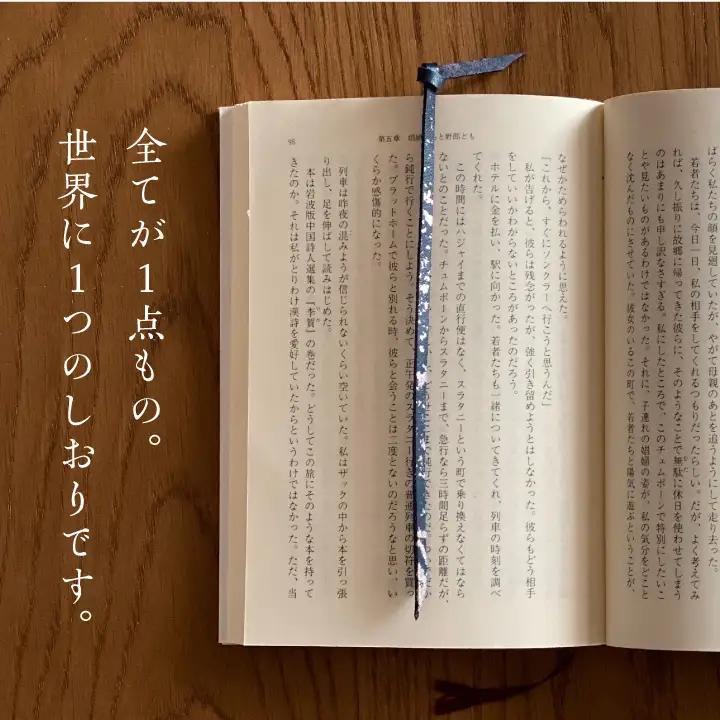 全てが1点もの。
世界に1つのしおりです。
ばらく私たちの顔を見廻していたが、やがて母親のあとを追うようにして走り去った。
若者たちは、今日一日、私の相手をしてくれるつもりだったらしい。だが、よく考えてみ
れば、久し振りに故郷に帰ってきた彼らに、そのようなことで無駄に休日を使わせてしまう
のはあまりにも申し訳なさすぎる。私にしたところで、このチュムポーンで特別にしたいこ
とや見たいものがあるわけではなかった。それに、子連れの娼婦の姿が、私の気分をどこと
なく沈んだものにさせていた。彼女のいるこの町で、若者たちと陽気に遊ぶということが、
98
第五章 娼婦 と野郎とも
なぜかためらわれるように思えた。
「これから、すぐにソンクラーへ行こうと思うんだ」
私が告げると、彼らは残念がったが、強く引き留めようとはしなかった。彼らもどう相手
をしていいかわからないところがあったのだろう。
ホテルに金を払い、駅に向かった。若者たちも一緒についてきてくれ、列車の時刻を調べ
てくれた。
この時間にはハジャイまでの直行便はなく、スラタニーという町で乗り換えなくてはなら
ないとのことだった。チュムポーンからスラタニーまで、急行なら三時間足らずの距離だが、
ら鈍行で行くことにしよう。そう決めて、正午発のスラタニー行きの普通列車の切符を買っ
た。プラットホームで彼らと別れる時、彼らと会うことは二度とないのだろうなと思い、い
くらか感傷的になった。
列車は昨夜の混みようが信じられないくらい空いていた。私はザックの中から本を引っ張
り出し、足を伸ばして読みはじめた。
本は岩波版中国詩人選集の『李賀』の巻だった。どうしてこの旅にそのような本を持って
きたのか。それは私がとりわけ漢詩を愛好していたからというわけではなかった。ただ、当